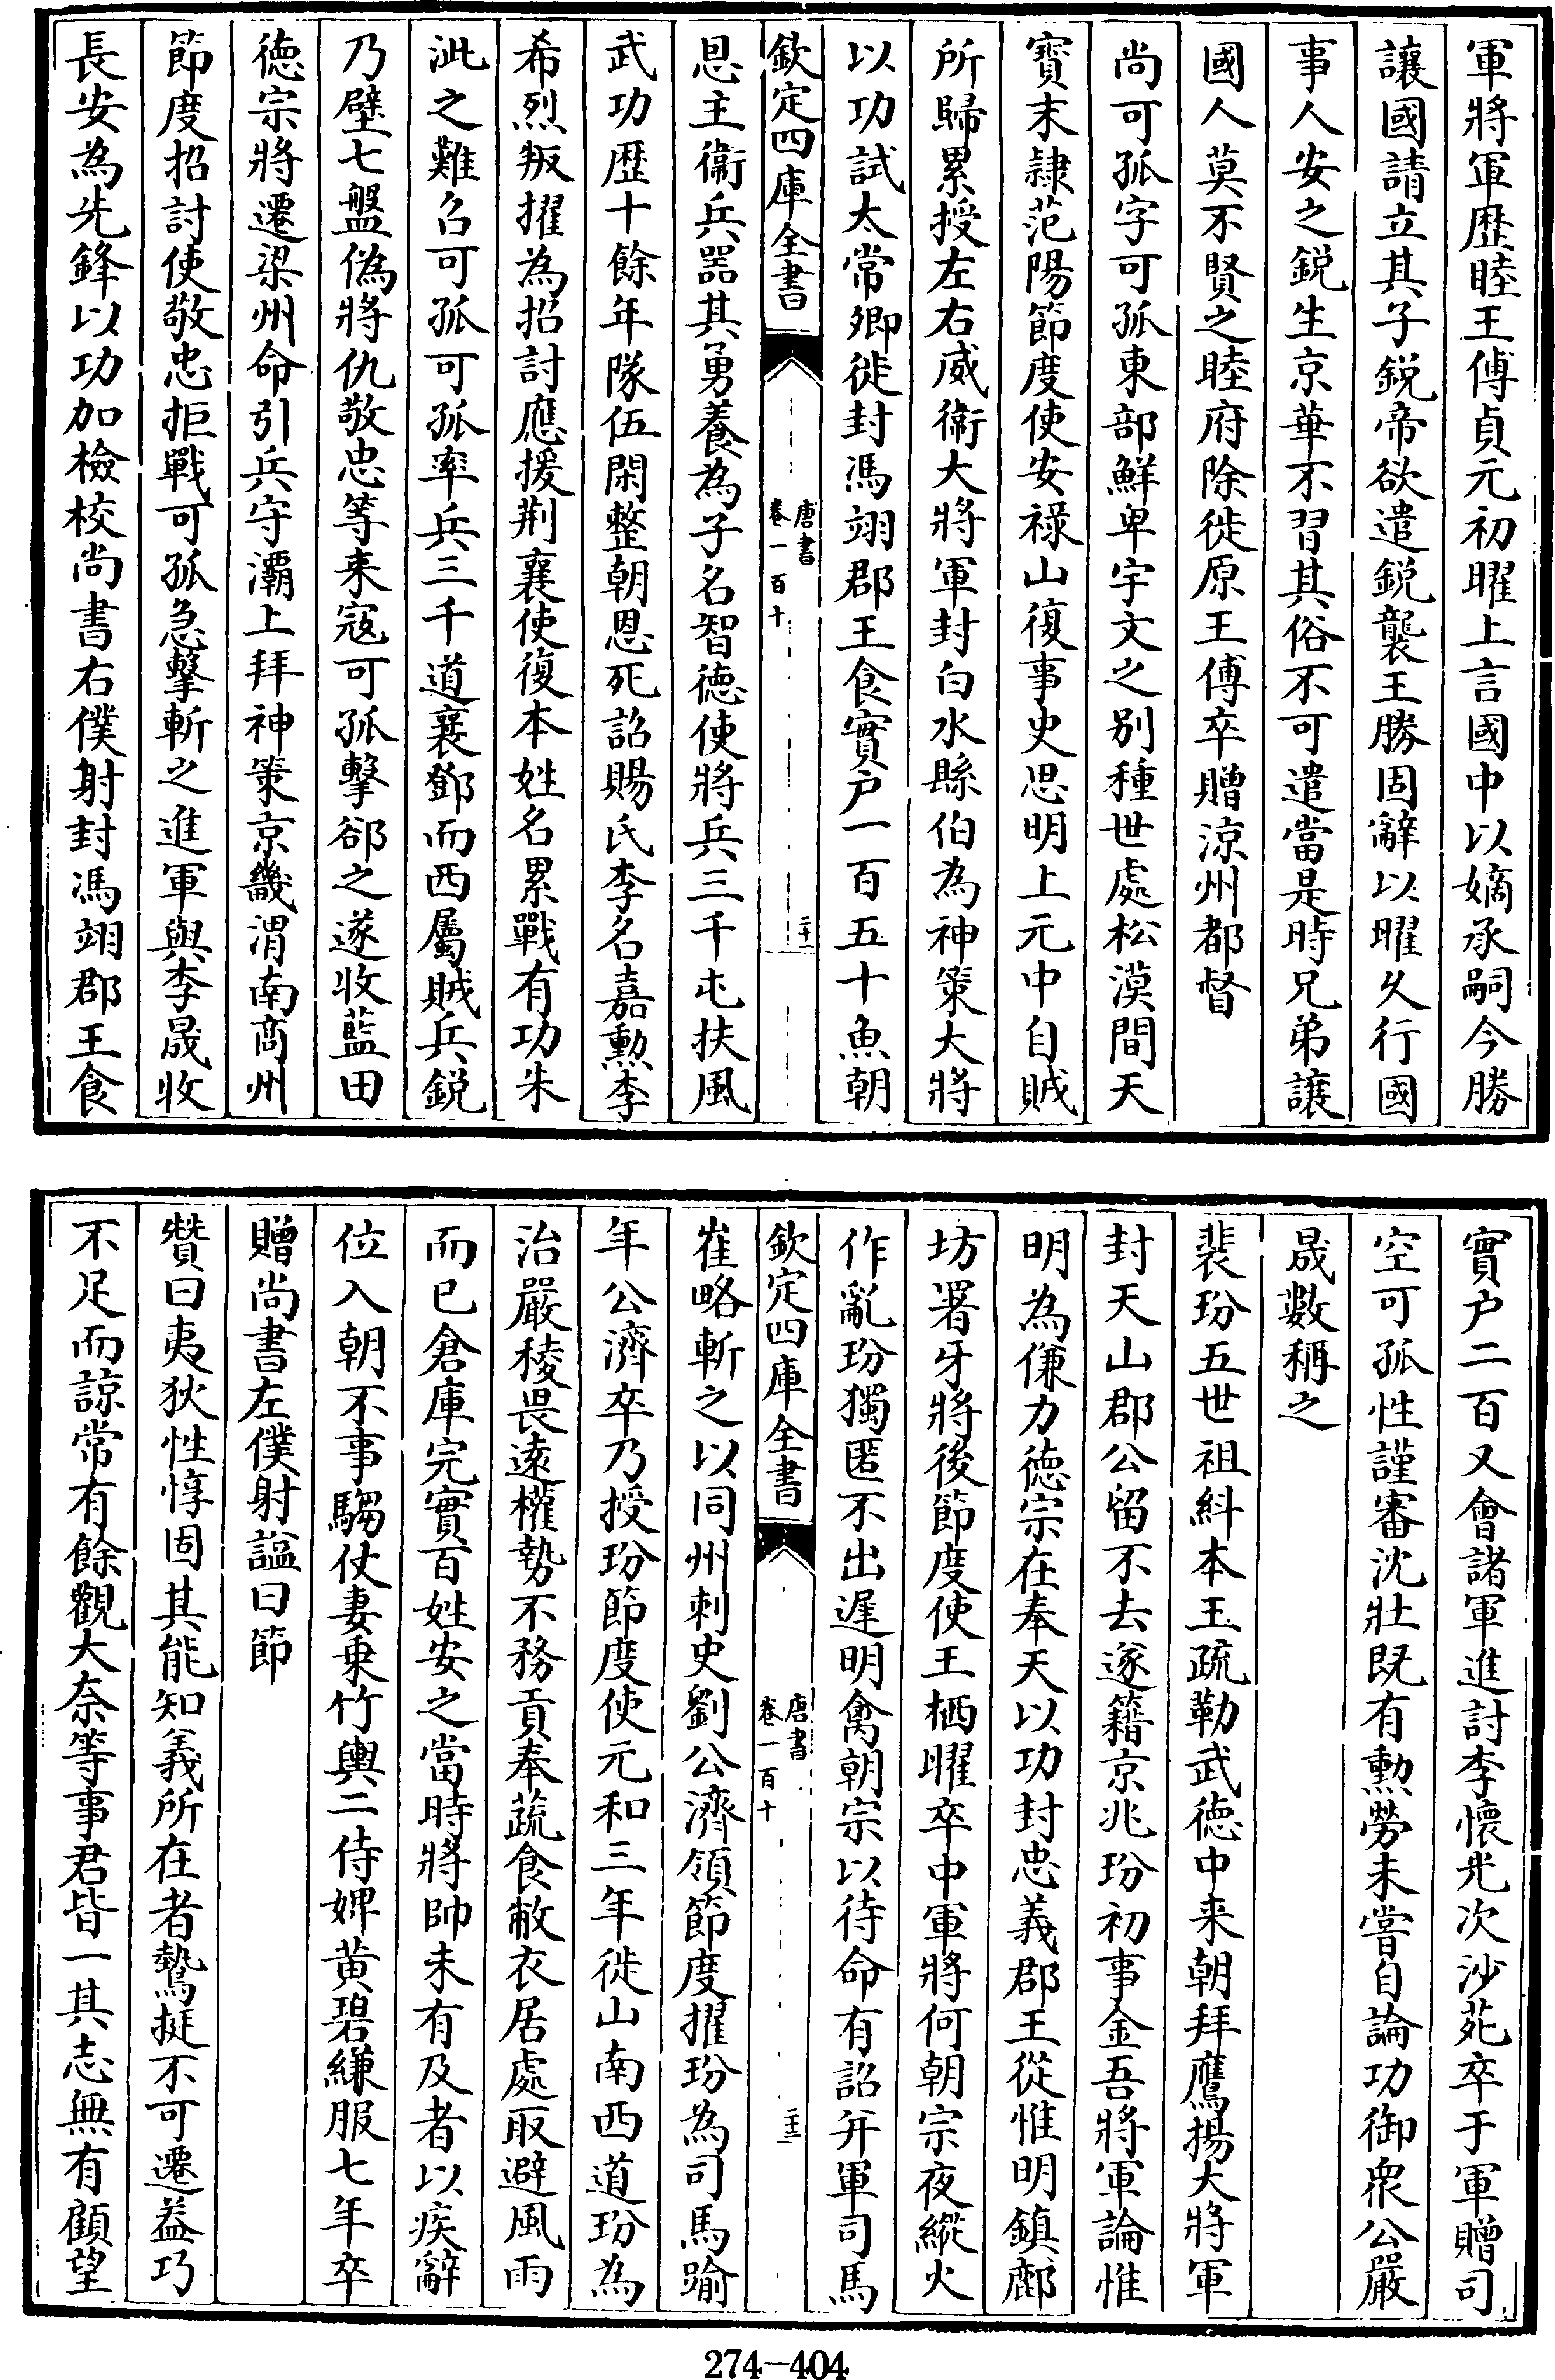 軍將軍歴睦王傅貞元初曜上言國中以嫡承嗣今勝
讓國請立其子鋭帝欲遣鋭襲王勝固辭以曜久行國
事人安之鋭生京華不習其俗不可遣當是時兄弟讓
國人莫不賢之睦府除徙原王傅卒贈涼州都督
尚可孤字可孤東部鮮卑宇文之别種世處松漠間天
寳末隷范陽節度使安禄山復事史思明上元中自賊
所歸累授左右威衞大將軍封白水縣伯為神策大將
以功試太常卿徙封馮翊郡王食實户一百五十魚朝
欽定四庫全書
唐書
卷一百十
二十一
恩主衞兵器其勇養為子名智德使將兵三千屯扶風
武功歴十餘年隊伍閑整朝恩死詔賜氏李名嘉勲李
希烈叛擢為招討應援荆襄使復本姓名累戰有功朱
泚之難召可孤可孤率兵三千道襄鄧而西屬賊兵鋭
乃壁七盤偽將仇敬忠等来寇可孤擊郤之遂收藍田
德宗將遷梁州命引兵守灞上拜神策京畿渭南商州
節度招討使敬忠拒戰可孤急擊斬之進軍與李晟收
長安為先鋒以功加檢校尚書右僕射封馮翊郡王食
實户二百又會諸軍進討李懷光次沙苑卒于軍贈司
空可孤性謹審沈壯既有勲勞未嘗自論功御衆公嚴
晟數稱之
裴玢五世祖糾本王疏勒武德中来朝拜鷹揚大將軍
封天山郡公留不去遂籍京兆玢初事金吾將軍論惟
明為傔力德宗在奉天以功封忠義郡王從惟明鎮鄜
坊署牙將後節度使王栖曜卒中軍將何朝宗夜縱火
作亂玢獨匿不出遲明禽朝宗以待命有詔并軍司馬
欽定四庫全書
唐書
卷一百十
二十二
崔略斬之以同州刺史劉公濟領節度擢玢為司馬踰
年公濟卒乃授玢節度使元和三年徙山南西道玢為
治嚴稜畏逺權勢不務貢奉蔬食敝衣居處取避風雨
而已倉庫完實百姓安之當時將帥未有及者以疾辭
位入朝不事騶仗妻乗竹輿二侍婢黄碧縑服七年卒
贈尚書左僕射諡曰節
贊曰夷狄性惇固其能知義所在者鷙挺不可遷蓋巧
不足而諒常有餘觀大奈等事君皆一其志無有顧望
274-404